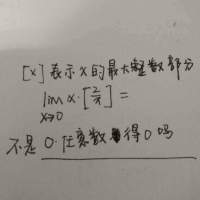 [x]表示x的最大整数部分
lim x·[2/x] =
x→0
不是 0·任意数得0吗